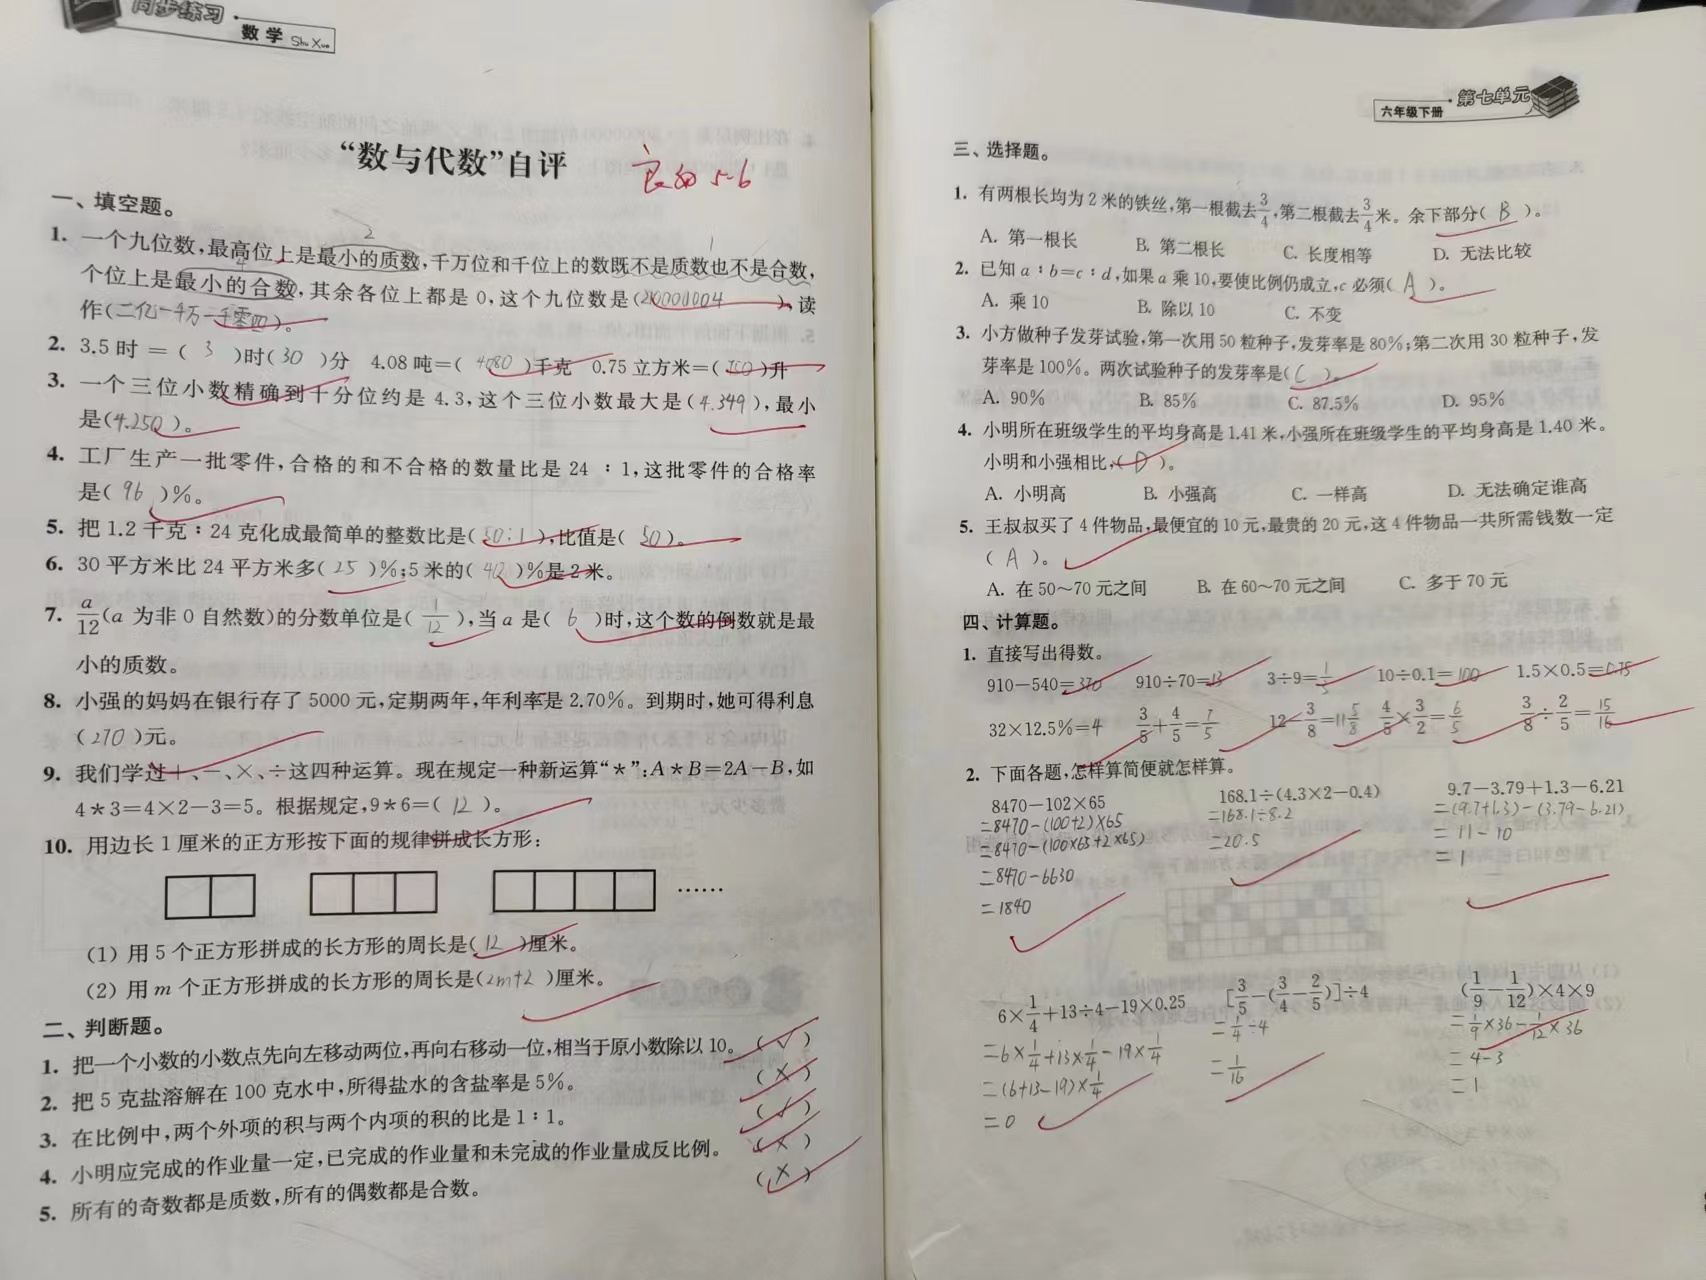 同步练习
数学 Shu Xue
“数与代数”自评
良的 5-6
一、填空题。
2
1
1. 一个九位数,最高位上是最小的质数,千万位和千位上的数既不是质数也不是合数,
4
个位上是最小的合数,其余各位上都是0,这个九位数是( ),读
作(二亿一千万一千零四)。
2. 3.5时=( 3 )时(30 )分 4.08吨=( 4080 )千克 0.75立方米=(750)升
3. 一个三位小数精确到十分位约是4.3,这个三位小数最大是(4.349),最小
是(4.250)。
4. 工厂生产一批零件,合格的和不合格的数量比是24:1,这批零件的合格率
是( 96 )%。
5. 把1.2千克:24克化成最简单的整数比是(50:1),比值是( 50)。
6. 30平方米比24平方米多( 25 )%;5米的( 40 )%是2米。
7. a/12(a为非0自然数)的分数单位是( 1/12 ),当a是( 6 )时,这个数的倒数就是最
小的质数。
8. 小强的妈妈在银行存了5000元,定期两年,年利率是2.70%。到期时,她可得利息
(270)元。
9. 我们学过+、-、×、÷这四种运算。现在规定一种新运算“*”:A*B=2A-B,如
4*3=4×2-3=5。根据规定,9*6=( 12 )。
10. 用边长1厘米的正方形按下面的规律拼成长方形:
……
(1) 用5个正方形拼成的长方形的周长是( 12 )厘米。
(2) 用m个正方形拼成的长方形的周长是(2m+2 )厘米。
二、判断题。
1. 把一个小数的小数点先向左移动两位,再向右移动一位,相当于原小数除以10。 (√)
2. 把5克盐溶解在100克水中,所得盐水的含盐率是5%。 (×)
3. 在比例中,两个外项的积与两个内项的积的比是1:1。 (√)
4. 小明应完成的作业量一定,已完成的作业量和未完成的作业量成反比例。 (×)
5. 所有的奇数都是质数,所有的偶数都是合数。 (×)
六年级下册 第七单元
三、选择题。
1. 有两根长均为2米的铁丝,第一根截去3/4,第二根截去3/4米。余下部分( B )。
A. 第一根长 B. 第二根长 C. 长度相等 D. 无法比较
2. 已知a:b=c:d,如果a乘10,要使比例仍成立,c必须( A )。
A. 乘10 B. 除以10 C. 不变
3. 小方做种子发芽试验,第一次用50粒种子,发芽率是80%;第二次用30粒种子,发
芽率是100%。两次试验种子的发芽率是( C )。
A. 90% B. 85% C. 87.5% D. 95%
4. 小明所在班级学生的平均身高是1.41米,小强所在班级学生的平均身高是1.40米。
小明和小强相比,( D )。
A. 小明高 B. 小强高 C. 一样高 D. 无法确定谁高
5. 王叔叔买了4件物品,最便宜的10元,最贵的20元,这4件物品一共所需钱数一定
( A )。
A. 在50~70元之间 B. 在60~70元之间 C. 多于70元
四、计算题。
1. 直接写出得数。
910-540=370 910÷70=13 3÷9= 10÷0.1=100 1.5×0.5=0.75
32×12.5%=4 3/5+4/5=7/5 12-3/8=11 5/8 4/5×3/2=6/5 3/8÷2/5=15/16
2. 下面各题,怎样算简便就怎样算。
8470-102×65 168.1÷(4.3×2-0.4) 9.7-3.79+1.3-6.21
=8470-(100+2)×65 =168.1÷8.2 =(9.7+1.3)-(3.79-6.21)
=8470-(100×65+2×65) =20.5 =11-10
=8470-6630 =1
=1840
6×1/4+13÷4-19×0.25 [3/5-(3/4-2/5)]÷4 (1/9-1/12)×4×9
=6×1/4+13×1/4-19×1/4 =1/4÷4 =1/9×36-1/12×36
=(6+13-19)×1/4 =1/16 =4-3
=0 =1